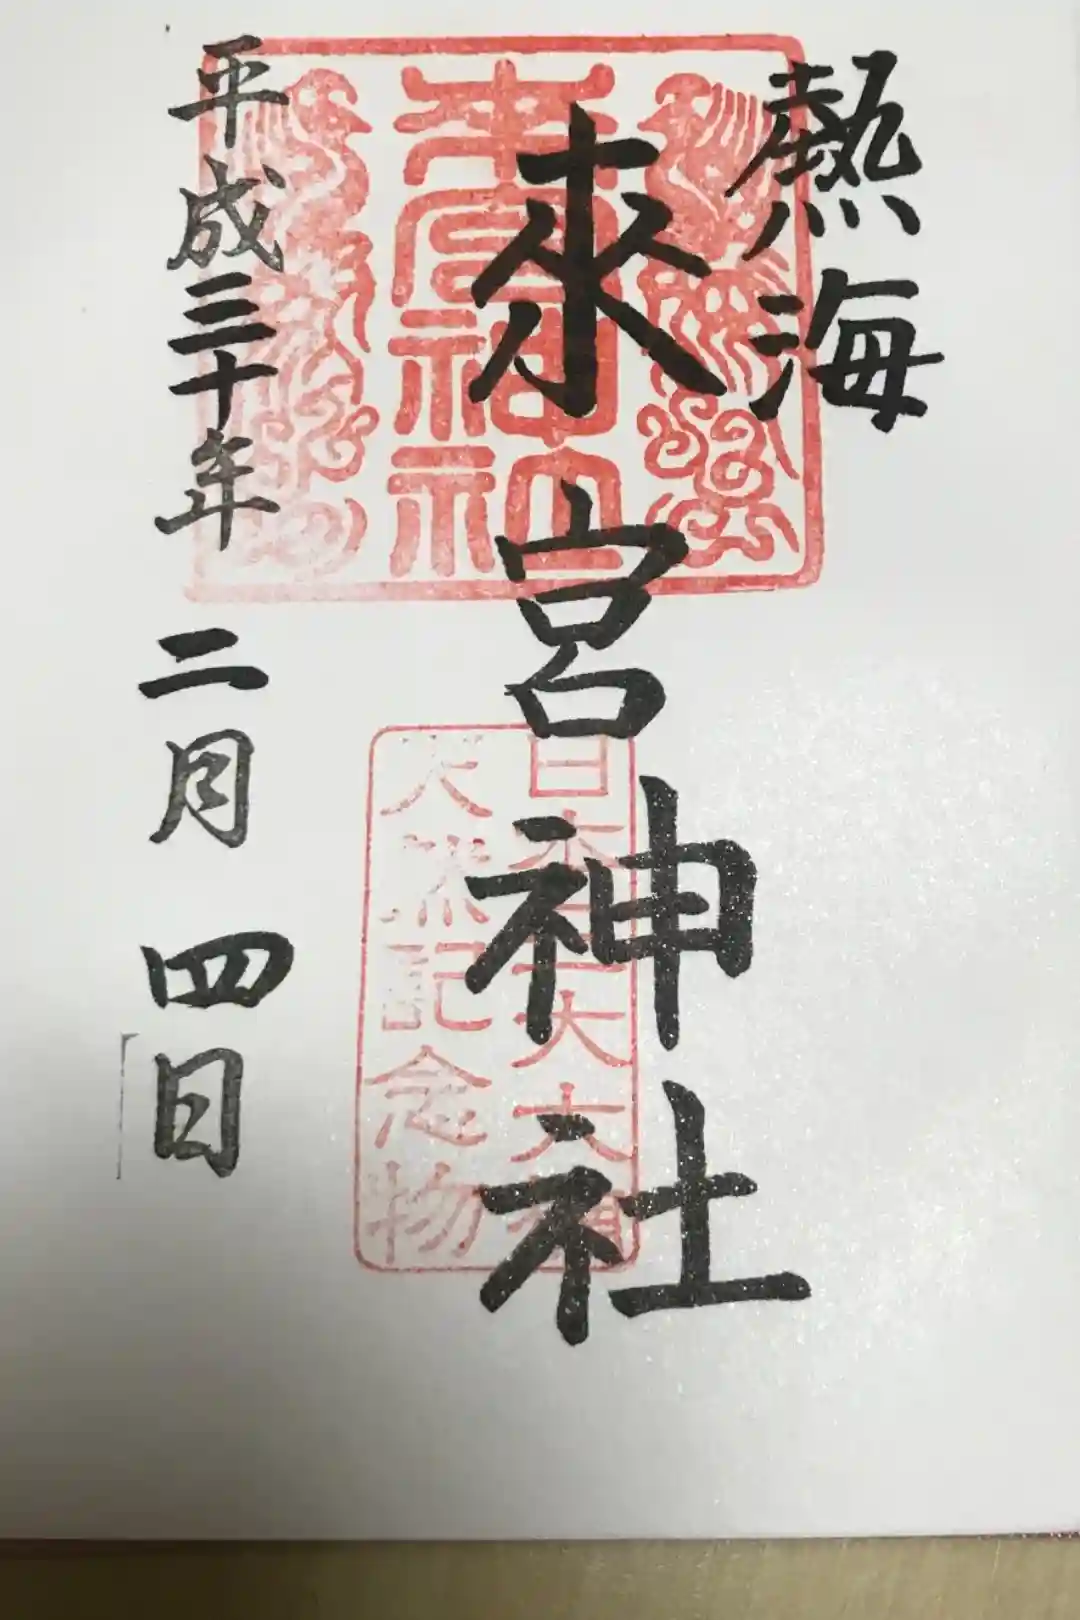 熱海
來宮神社
來宮神社
日本三大大楠
天然記念物
平成三十年 二月 四日